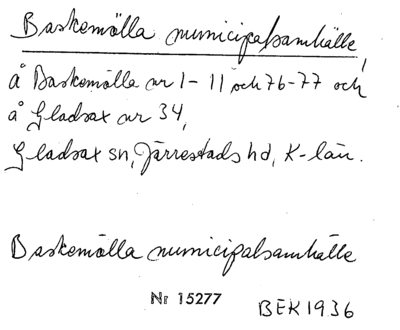 Baskemölla municipalsamhälle,
å Baskemölla nr 1-11 och 76-77 och
å Gladsax nr 34,
Gladsax sn, Järrestads hd, K-län.
Baskemölla municipalsamhälle
Nr 15277
BEK 1936